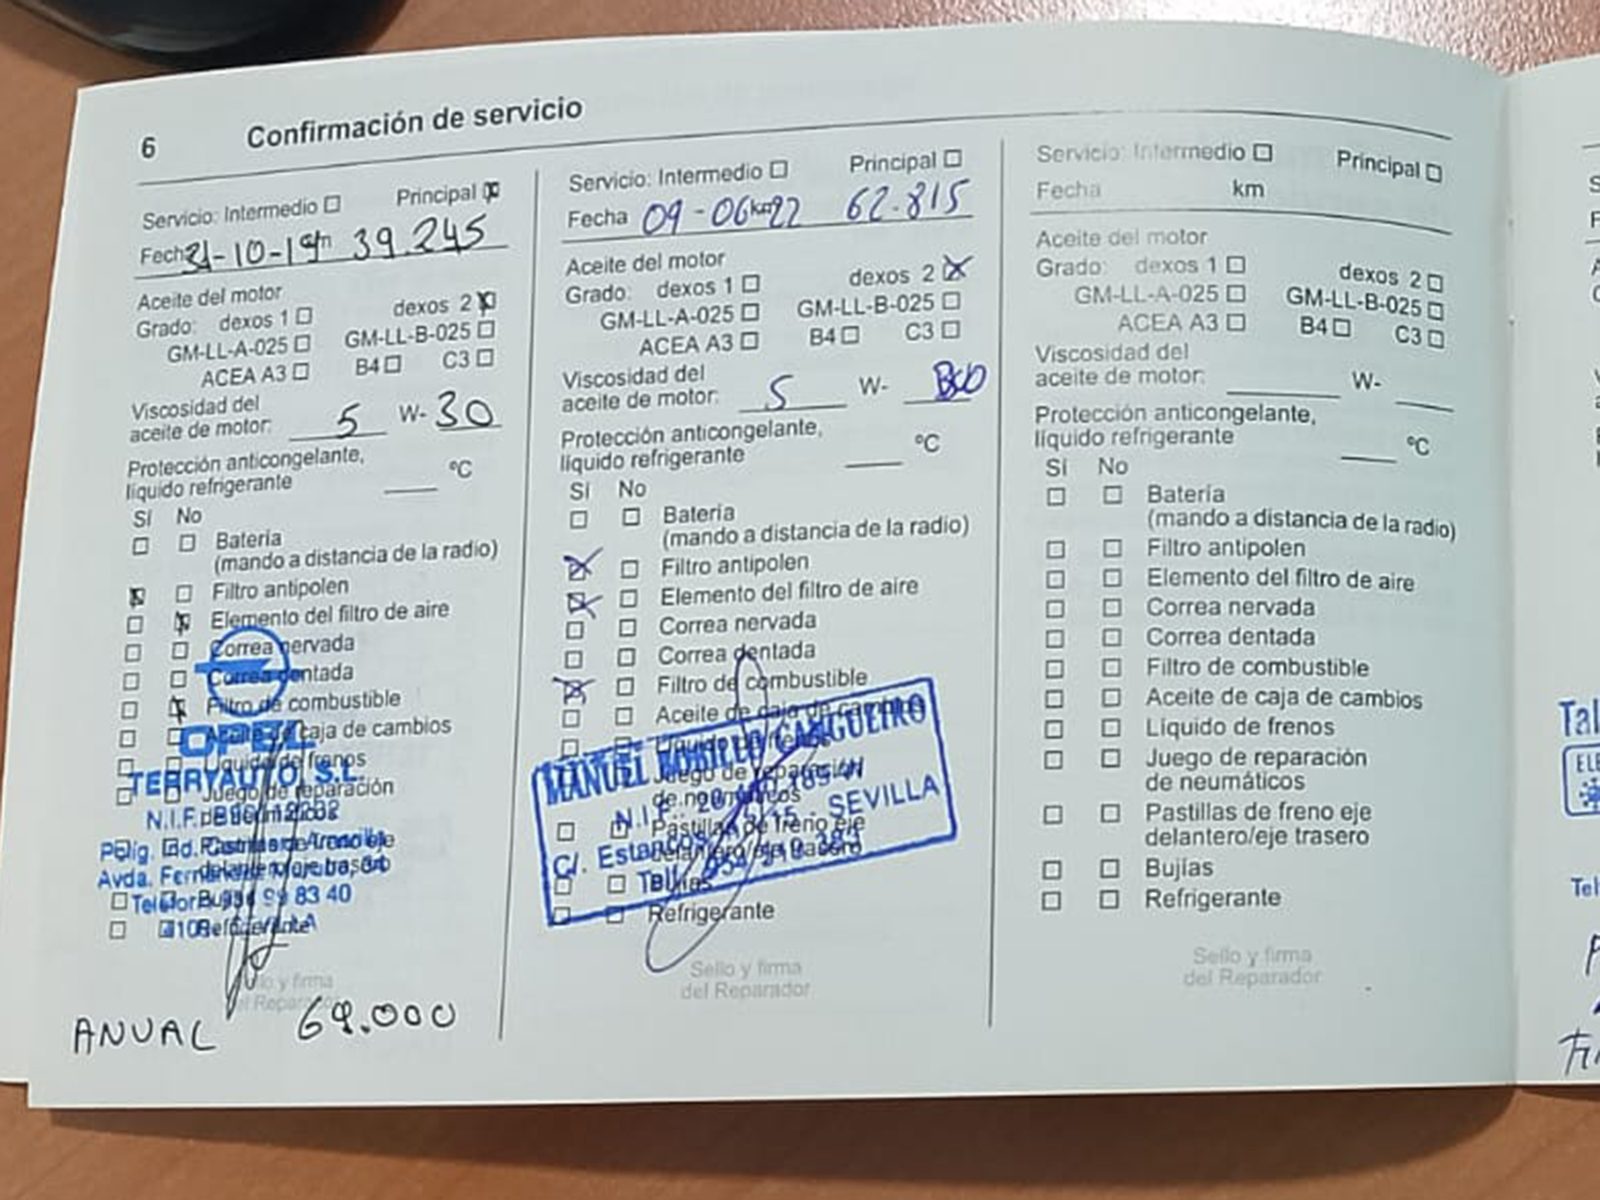 6 Confirmación de servicio
Servicio: Intermedio Principal
Fecha 21-10-19 km 39.245
Aceite del motor
Grado: dexos 1 dexos 2
GM-LL-A-025 GM-LL-B-025
ACEA A3 B4 C3
Viscosidad del
aceite de motor: 5 W- 30
Protección anticongelante,
líquido refrigerante °C
Sí No
Batería
(mando a distancia de la radio)
Filtro antipolen
Elemento del filtro de aire
Correa nervada
Correa dentada
Filtro de combustible
Aceite de caja de cambios
Líquido de frenos
Juego de reparación
OPEL
TERRYAUTO, S.L.
N.I.F.
Avda.
83 40
Refrigerante
Sello y firma
del Reparador
ANUAL 69.000
Servicio: Intermedio Principal
Fecha 09-06-22 km 62.815
Aceite del motor
Grado: dexos 1 dexos 2
GM-LL-A-025 GM-LL-B-025
ACEA A3 B4 C3
Viscosidad del
aceite de motor: 5 W-
Protección anticongelante,
líquido refrigerante °C
Sí No
Batería
(mando a distancia de la radio)
Filtro antipolen
Elemento del filtro de aire
Correa nervada
Correa dentada
Filtro de combustible
Aceite de caja de cambios
Líquido de frenos
Juego de reparación
de neumáticos
Pastillas de freno eje
delantero/eje trasero
Bujías
Refrigerante
MANUEL
N.I.F.:
SEVILLA
Sello y firma
del Reparador
Servicio: Intermedio Principal
Fecha km
Aceite del motor
Grado: dexos 1 dexos 2
GM-LL-A-025 GM-LL-B-025
ACEA A3 B4 C3
Viscosidad del
aceite de motor: W-
Protección anticongelante,
líquido refrigerante °C
Sí No
Batería
(mando a distancia de la radio)
Filtro antipolen
Elemento del filtro de aire
Correa nervada
Correa dentada
Filtro de combustible
Aceite de caja de cambios
Líquido de frenos
Juego de reparación
de neumáticos
Pastillas de freno eje
delantero/eje trasero
Bujías
Refrigerante
Sello y firma
del Reparador